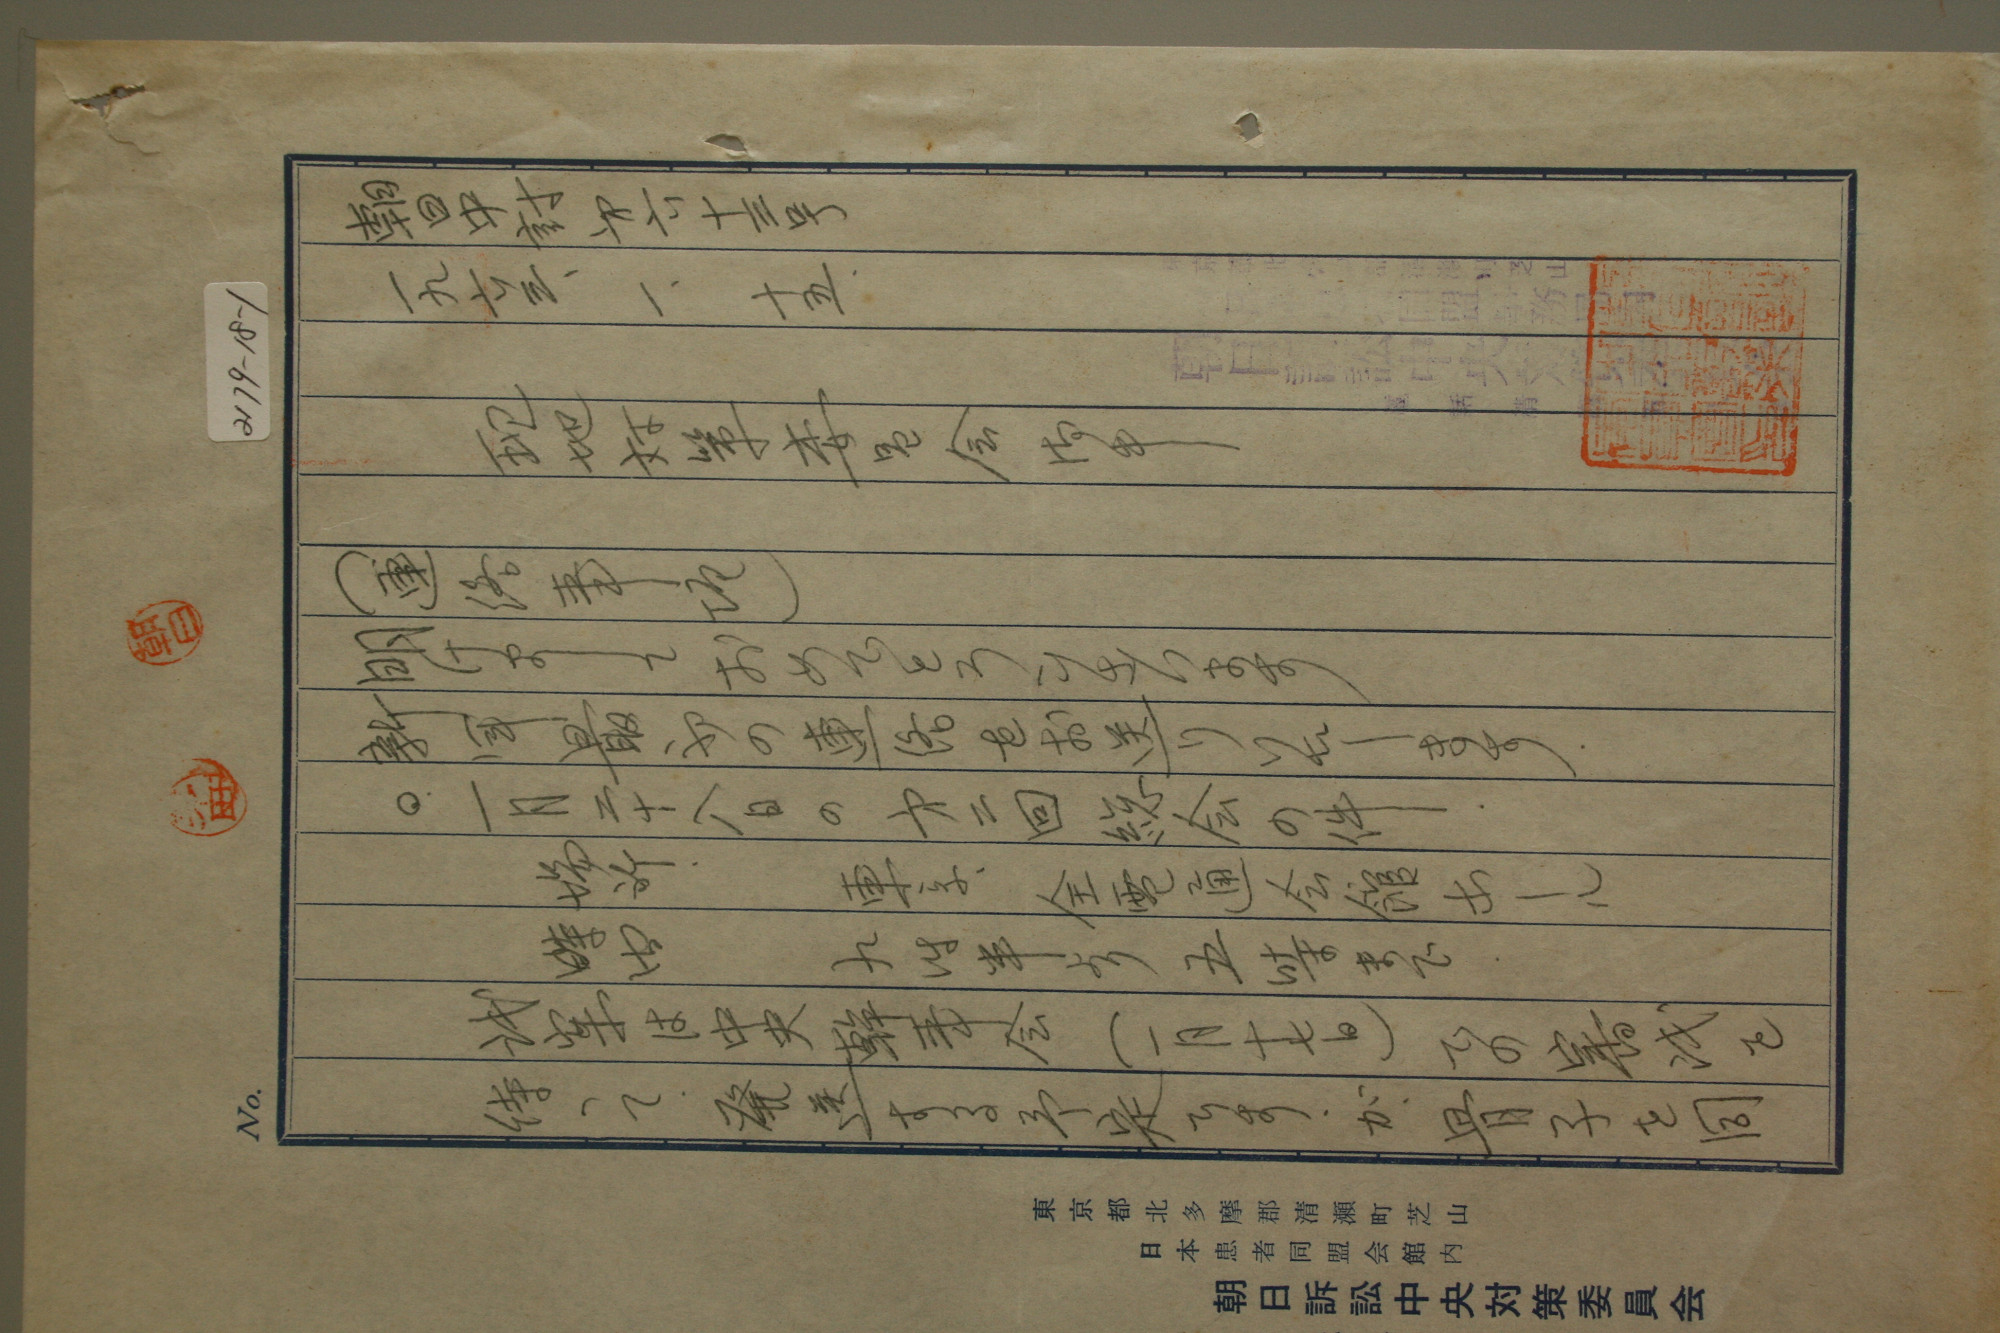 2179-18-1
No.
朝日中対第六十三号
一九六三、一、十五.
現地対策委員会 御中
(連絡事項)
明けましておめでとうございます
新年最初の連絡をお送りいたします.
○. 一月二十八日の第二回総会の件.
場所. 東京、全電通会館ホール
時間 九時半より五時まで.
議案は中央幹事会(一月十七日)での審議を
待って. 発送する予定です. が. 骨子を同
東京都北多摩郡清瀬町芝山
日本患者同盟会館内
朝日訴訟中央対策委員会